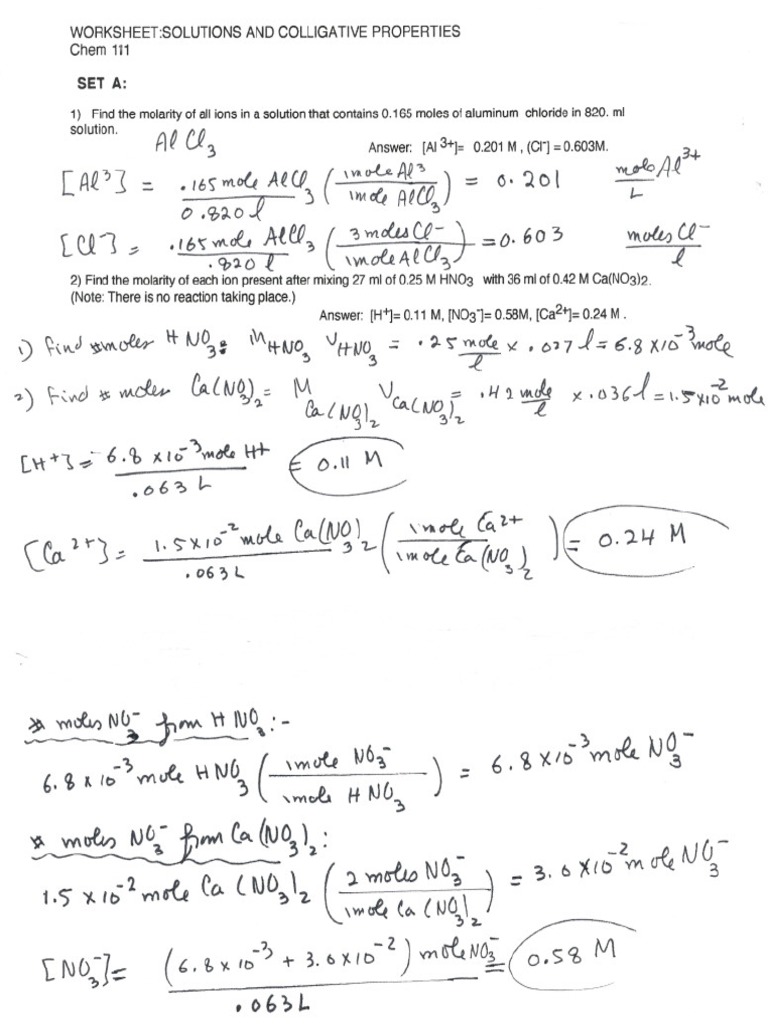 WORKSHEET:SOLUTIONS AND COLLIGATIVE PROPERTIES
Chem 111
SET A:
1) Find the molarity of all ions in a solution that contains 0.165 moles of aluminum chloride in 820. ml
solution.
Al Cl3
Answer: [Al 3+]= 0.201 M , (Cl-] = 0.603M.
[Al3] = .165 mole AlCl3 / 0.820 l ( 1 mole Al3 / 1 mole AlCl3 ) = 0.201 mole Al3+ / L
[Cl-] = .165 mole AlCl3 / .820 l ( 3 moles Cl- / 1 mole AlCl3 ) = 0.603 moles Cl- / l
2) Find the molarity of each ion present after mixing 27 ml of 0.25 M HNO3 with 36 ml of 0.42 M Ca(NO3)2.
(Note: There is no reaction taking place.)
Answer: [H+]= 0.11 M, [NO3-]= 0.58M, [Ca2+]= 0.24 M .
1) find # moles HNO3 = MHNO3 VHNO3 = .25 mole / l x .027 l = 6.8 x 10-3 mole
2) Find # moles Ca(NO3)2 = M Ca(NO3)2 V Ca(NO3)2 = .42 mole / l x .036 l = 1.5 x 10-2 mole
[H+] = 6.8 x 10-3 mole H+ / .063 L = 0.11 M
[Ca2+] = 1.5 x 10-2 mole Ca(NO3)2 / .063 L ( 1 mole Ca2+ / 1 mole Ca(NO3)2 ) = 0.24 M
* moles NO3- from HNO3 :-
6.8 x 10-3 mole HNO3 ( 1 mole NO3- / 1 mole HNO3 ) = 6.8 x 10-3 mole NO3-
* moles NO3- from Ca(NO3)2 :
1.5 x 10-2 mole Ca(NO3)2 ( 2 moles NO3- / 1 mole Ca(NO3)2 ) = 3.0 x 10-2 mole NO3-
[NO3-] = (6.8 x 10-3 + 3.0 x 10-2) mole NO3- / .063 L = 0.58 M